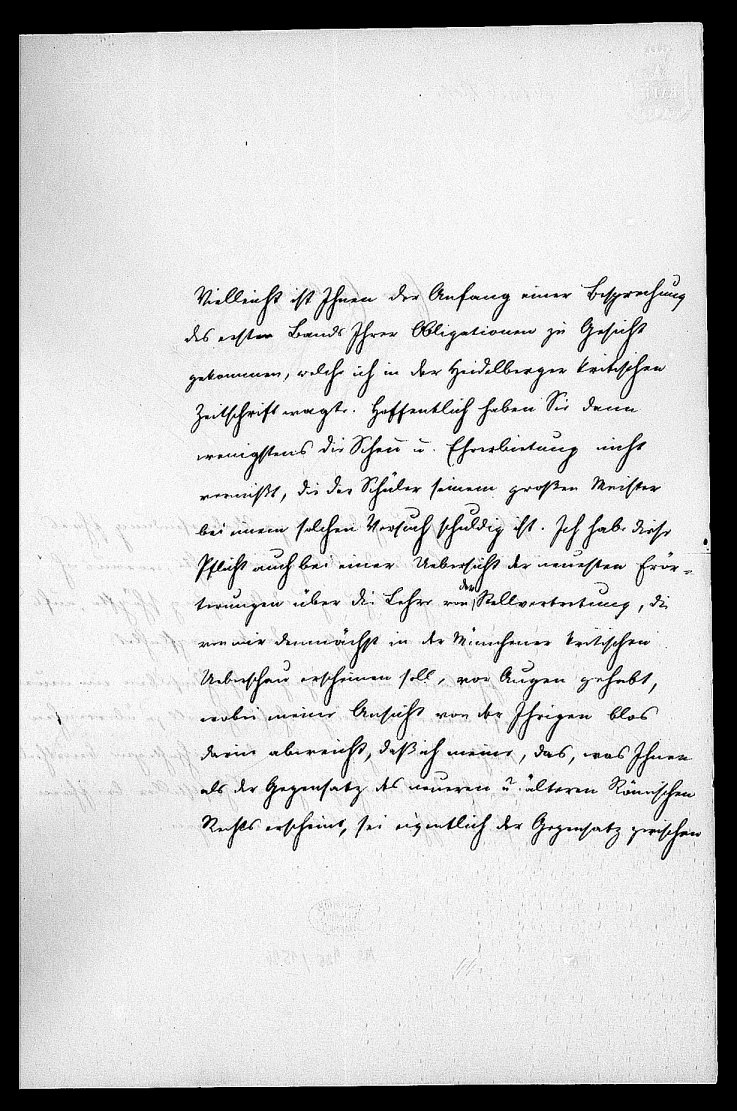 Vielleicht ist Ihnen der Anfang einer Besprechung
des ersten Bands Ihrer Obligationen zu Gesicht
gekommen, welche ich in der Heidelberger kritischen
Zeitschrift wagte. Hoffentlich haben Sie denn
wenigstens die Scheu u. Ehrerbietung nicht
vermißt, die der Schüler seinem großen Meister
bei einem solchen Versuch schuldig ist. Ich habe diese
Pflicht auch bei einer Uebersicht der neuesten Erör-
terungen über die Lehre von der Stellvertretung, die
von mir demnächst in der Münchener kritischen
Ueberschau erscheinen soll, vor Augen gehabt,
wobei meine Ansicht von der Ihrigen blos
darin abweicht, daß ich meine, das, was Ihnen
als der Gegensatz des neueren u. älteren Römischen
Rechts erscheint, sei eigentlich der Gegensatz zwischen